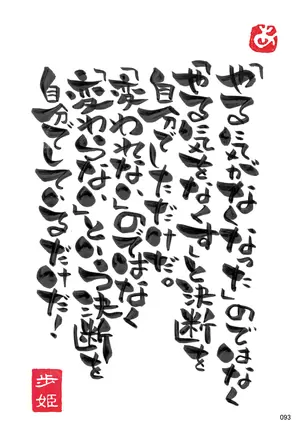 あ
「やる気がなくなった」のではなく
「やる気をなくす」と決断を
自分でしただけだ。
「変われない」のではなく
「変わらない」という決断を
自分でしているだけだ！
歩姫
093